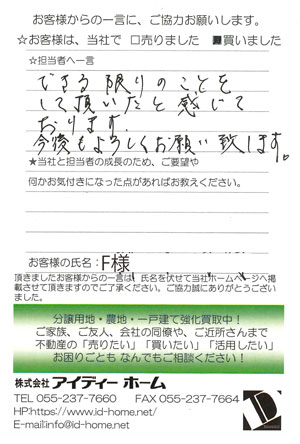 お客様からの一言に、ご協力お願いします。
☆お客様は、当社で □売りました ■買いました
☆担当者へ一言
できる限りのことを
して頂いたと感じて
おります。
今後もよろしくお願い致します。
★当社と担当者の成長のため、ご要望や
何かお気付きになった点があればお教えください。
お客様の氏名:F様
頂きましたお客様からの一言は、氏名を伏せて当社ホームページへ掲
載させて頂きますのでご了承ください。ご協力誠にありがとうござい
ました。
分譲用地・農地・一戸建て強化買取中!
ご家族、ご友人、会社の同僚や、ご近所さんまで
不動産の「売りたい」「買いたい」「活用したい」
お困りごとも なんでもご相談ください!
株式会社 アイディー ホーム
TEL 055-237-7660 FAX 055-237-7664
HP:https://www.id-home.net/
E-mail:info@id-home.net